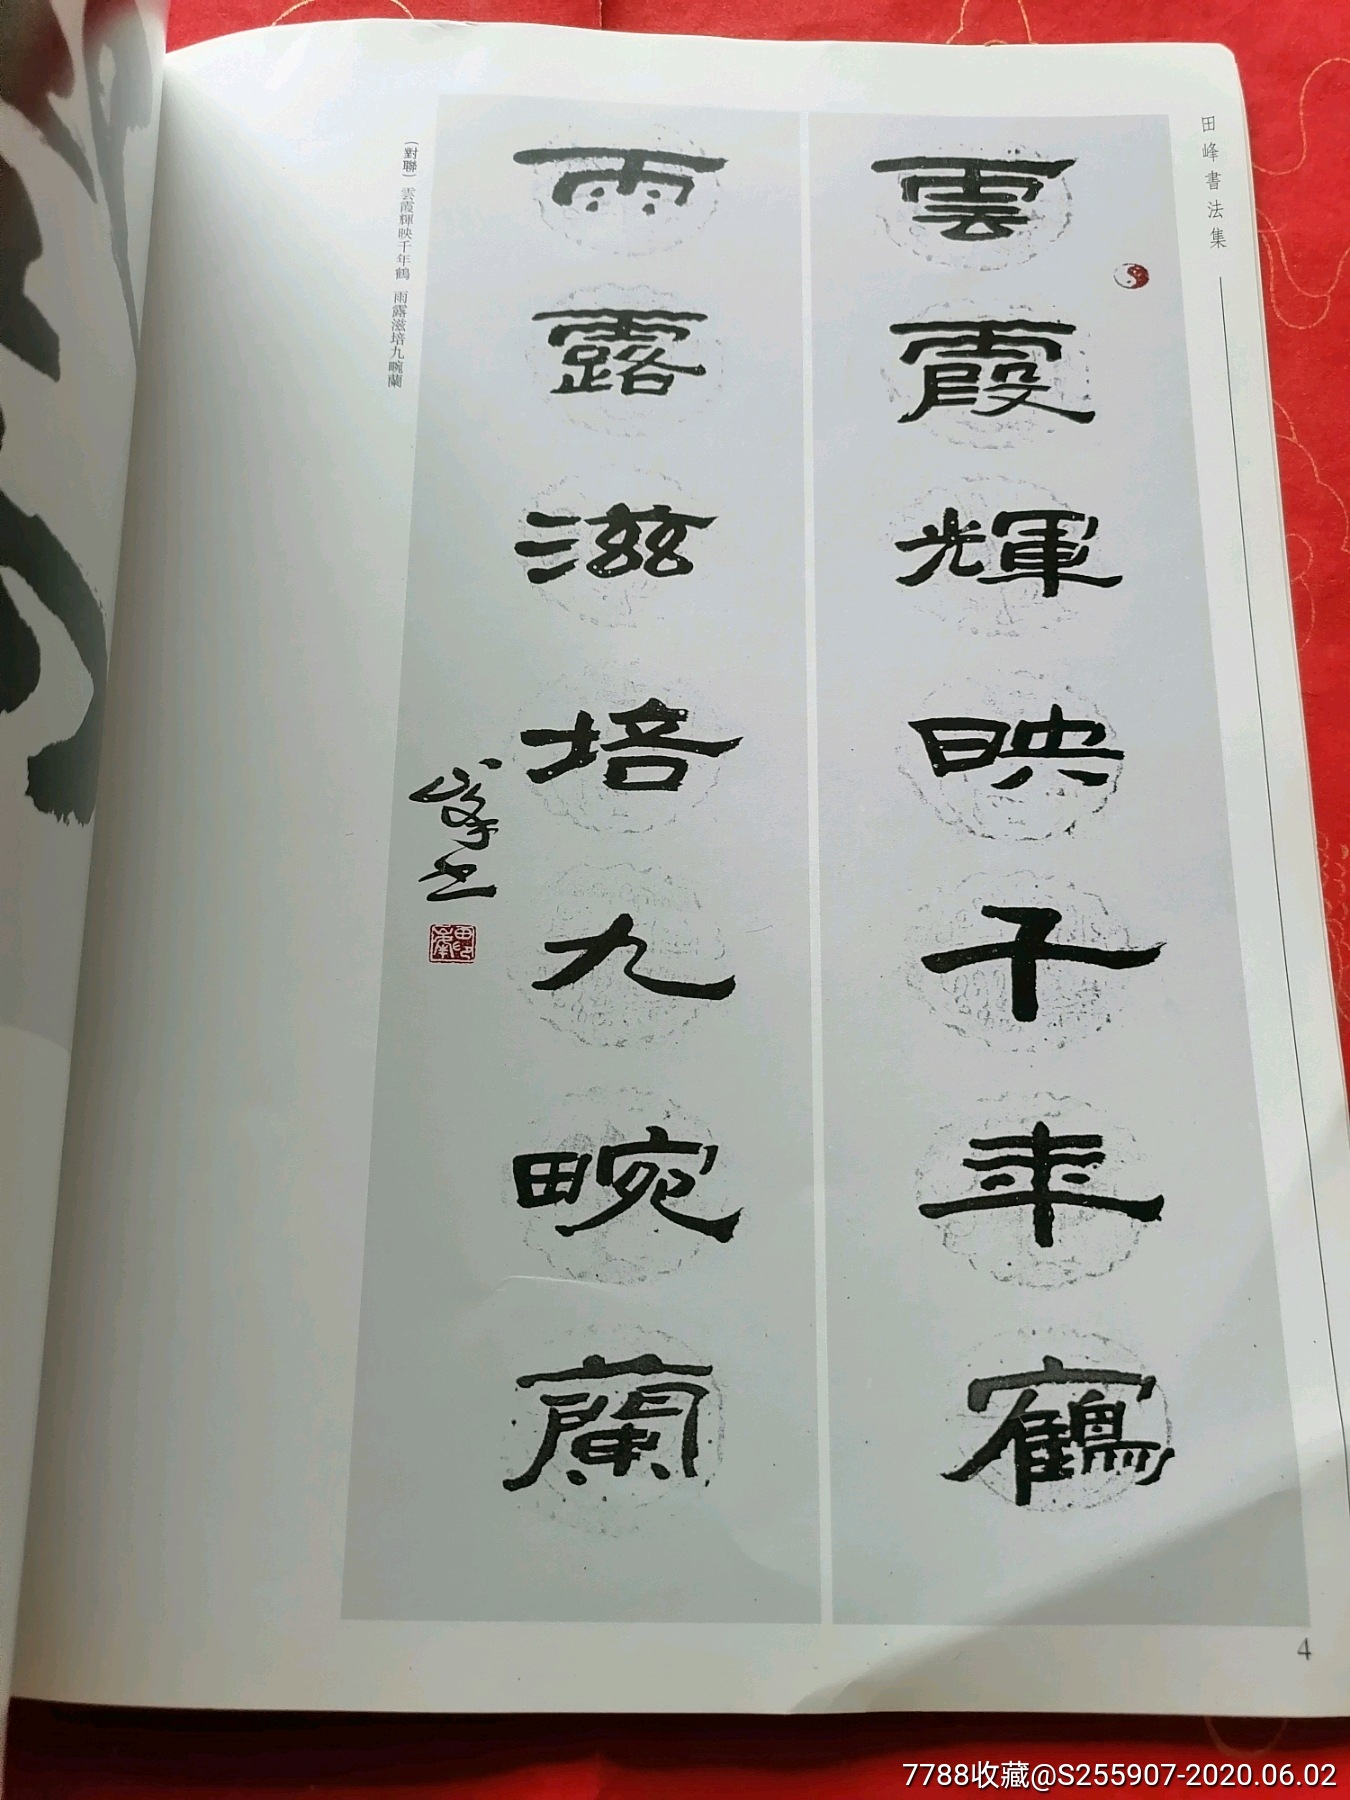 田峰書法集
雲霞輝映千年鶴
雨露滋培九畹蘭
峰书
(對聯) 雲霞輝映千年鶴 雨露滋培九畹蘭
4
7788收藏@S255907-2020.06.02